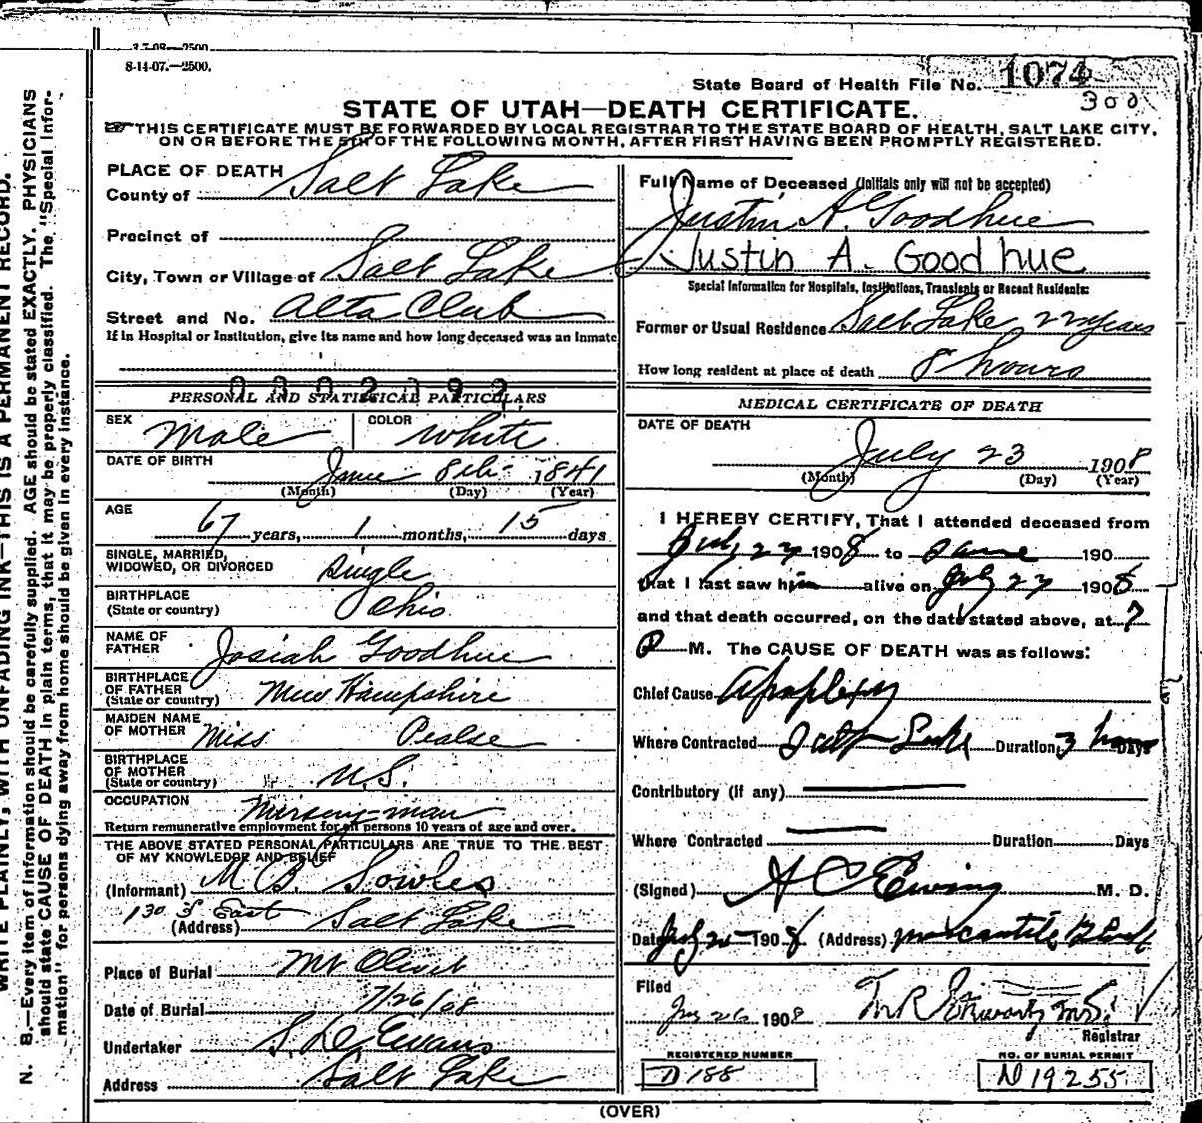 3-7-08—2500.
8-14-07.—2500.
State Board of Health File No. 1074
300
STATE OF UTAH—DEATH CERTIFICATE.
THIS CERTIFICATE MUST BE FORWARDED BY LOCAL REGISTRAR TO THE STATE BOARD OF HEALTH, SALT LAKE CITY,
ON OR BEFORE THE 5th OF THE FOLLOWING MONTH, AFTER FIRST HAVING BEEN PROMPTLY REGISTERED.
WRITE PLAINLY, WITH UNFADING INK—THIS IS A PERMANENT RECORD.
N. B.—Every item of information should be carefully supplied. AGE should be stated EXACTLY. PHYSICIANS
should state CAUSE OF DEATH in plain terms, that it may be properly classified. The "Special Infor-
mation" for persons dying away from home should be given in every instance.
PLACE OF DEATH
County of Salt Lake
Precinct of
City, Town or Village of Salt Lake
Street and No. Alta Club
If in Hospital or Institution, give its name and how long deceased was an Inmate
PERSONAL AND STATISTICAL PARTICULARS
SEX Male COLOR White
DATE OF BIRTH June 8th 1841
(Month) (Day) (Year)
AGE
67 years, 1 months, 15 days
SINGLE, MARRIED,
WIDOWED, OR DIVORCED Single
BIRTHPLACE
(State or country) Ohio
NAME OF
FATHER Josiah Goodhue
BIRTHPLACE
OF FATHER
(State or country) New Hampshire
MAIDEN NAME
OF MOTHER Miss
BIRTHPLACE
OF MOTHER
(State or country) U.S.
OCCUPATION
Return remunerative employment for all persons 10 years of age and over.
THE ABOVE STATED PERSONAL PARTICULARS ARE TRUE TO THE BEST
OF MY KNOWLEDGE AND BELIEF
(Informant) M B. Sowles
130 S East
(Address) Salt Lake
Place of Burial Mt Olivet
Date of Burial 7/26/08
Undertaker S. D. Evans
Address Salt Lake
Full Name of Deceased (Initials only will not be accepted)
Justin A Goodhue
Justin A. Goodhue
Special Information for Hospitals, Institutions, Transients or Recent Residents:
Former or Usual Residence Salt Lake 22 years
How long resident at place of death 8 hours
MEDICAL CERTIFICATE OF DEATH
DATE OF DEATH
July 23 1908
(Month) (Day) (Year)
I HEREBY CERTIFY, That I attended deceased from
July 23 1908 to Same 190
that I last saw him alive on July 23 1908
and that death occurred, on the date stated above, at 7
P M. The CAUSE OF DEATH was as follows:
Chief Cause Apoplexy
Where Contracted Salt Lake Duration 3 hours Days
Contributory (if any)
Where Contracted Duration Days
(Signed) H C Ewing M. D.
Date July 25 1908 (Address) Mercantile Block
Filed
July 26 1908
Registrar
REGISTERED NUMBER
D 188
NO. OF BURIAL PERMIT
N 19255
(OVER)